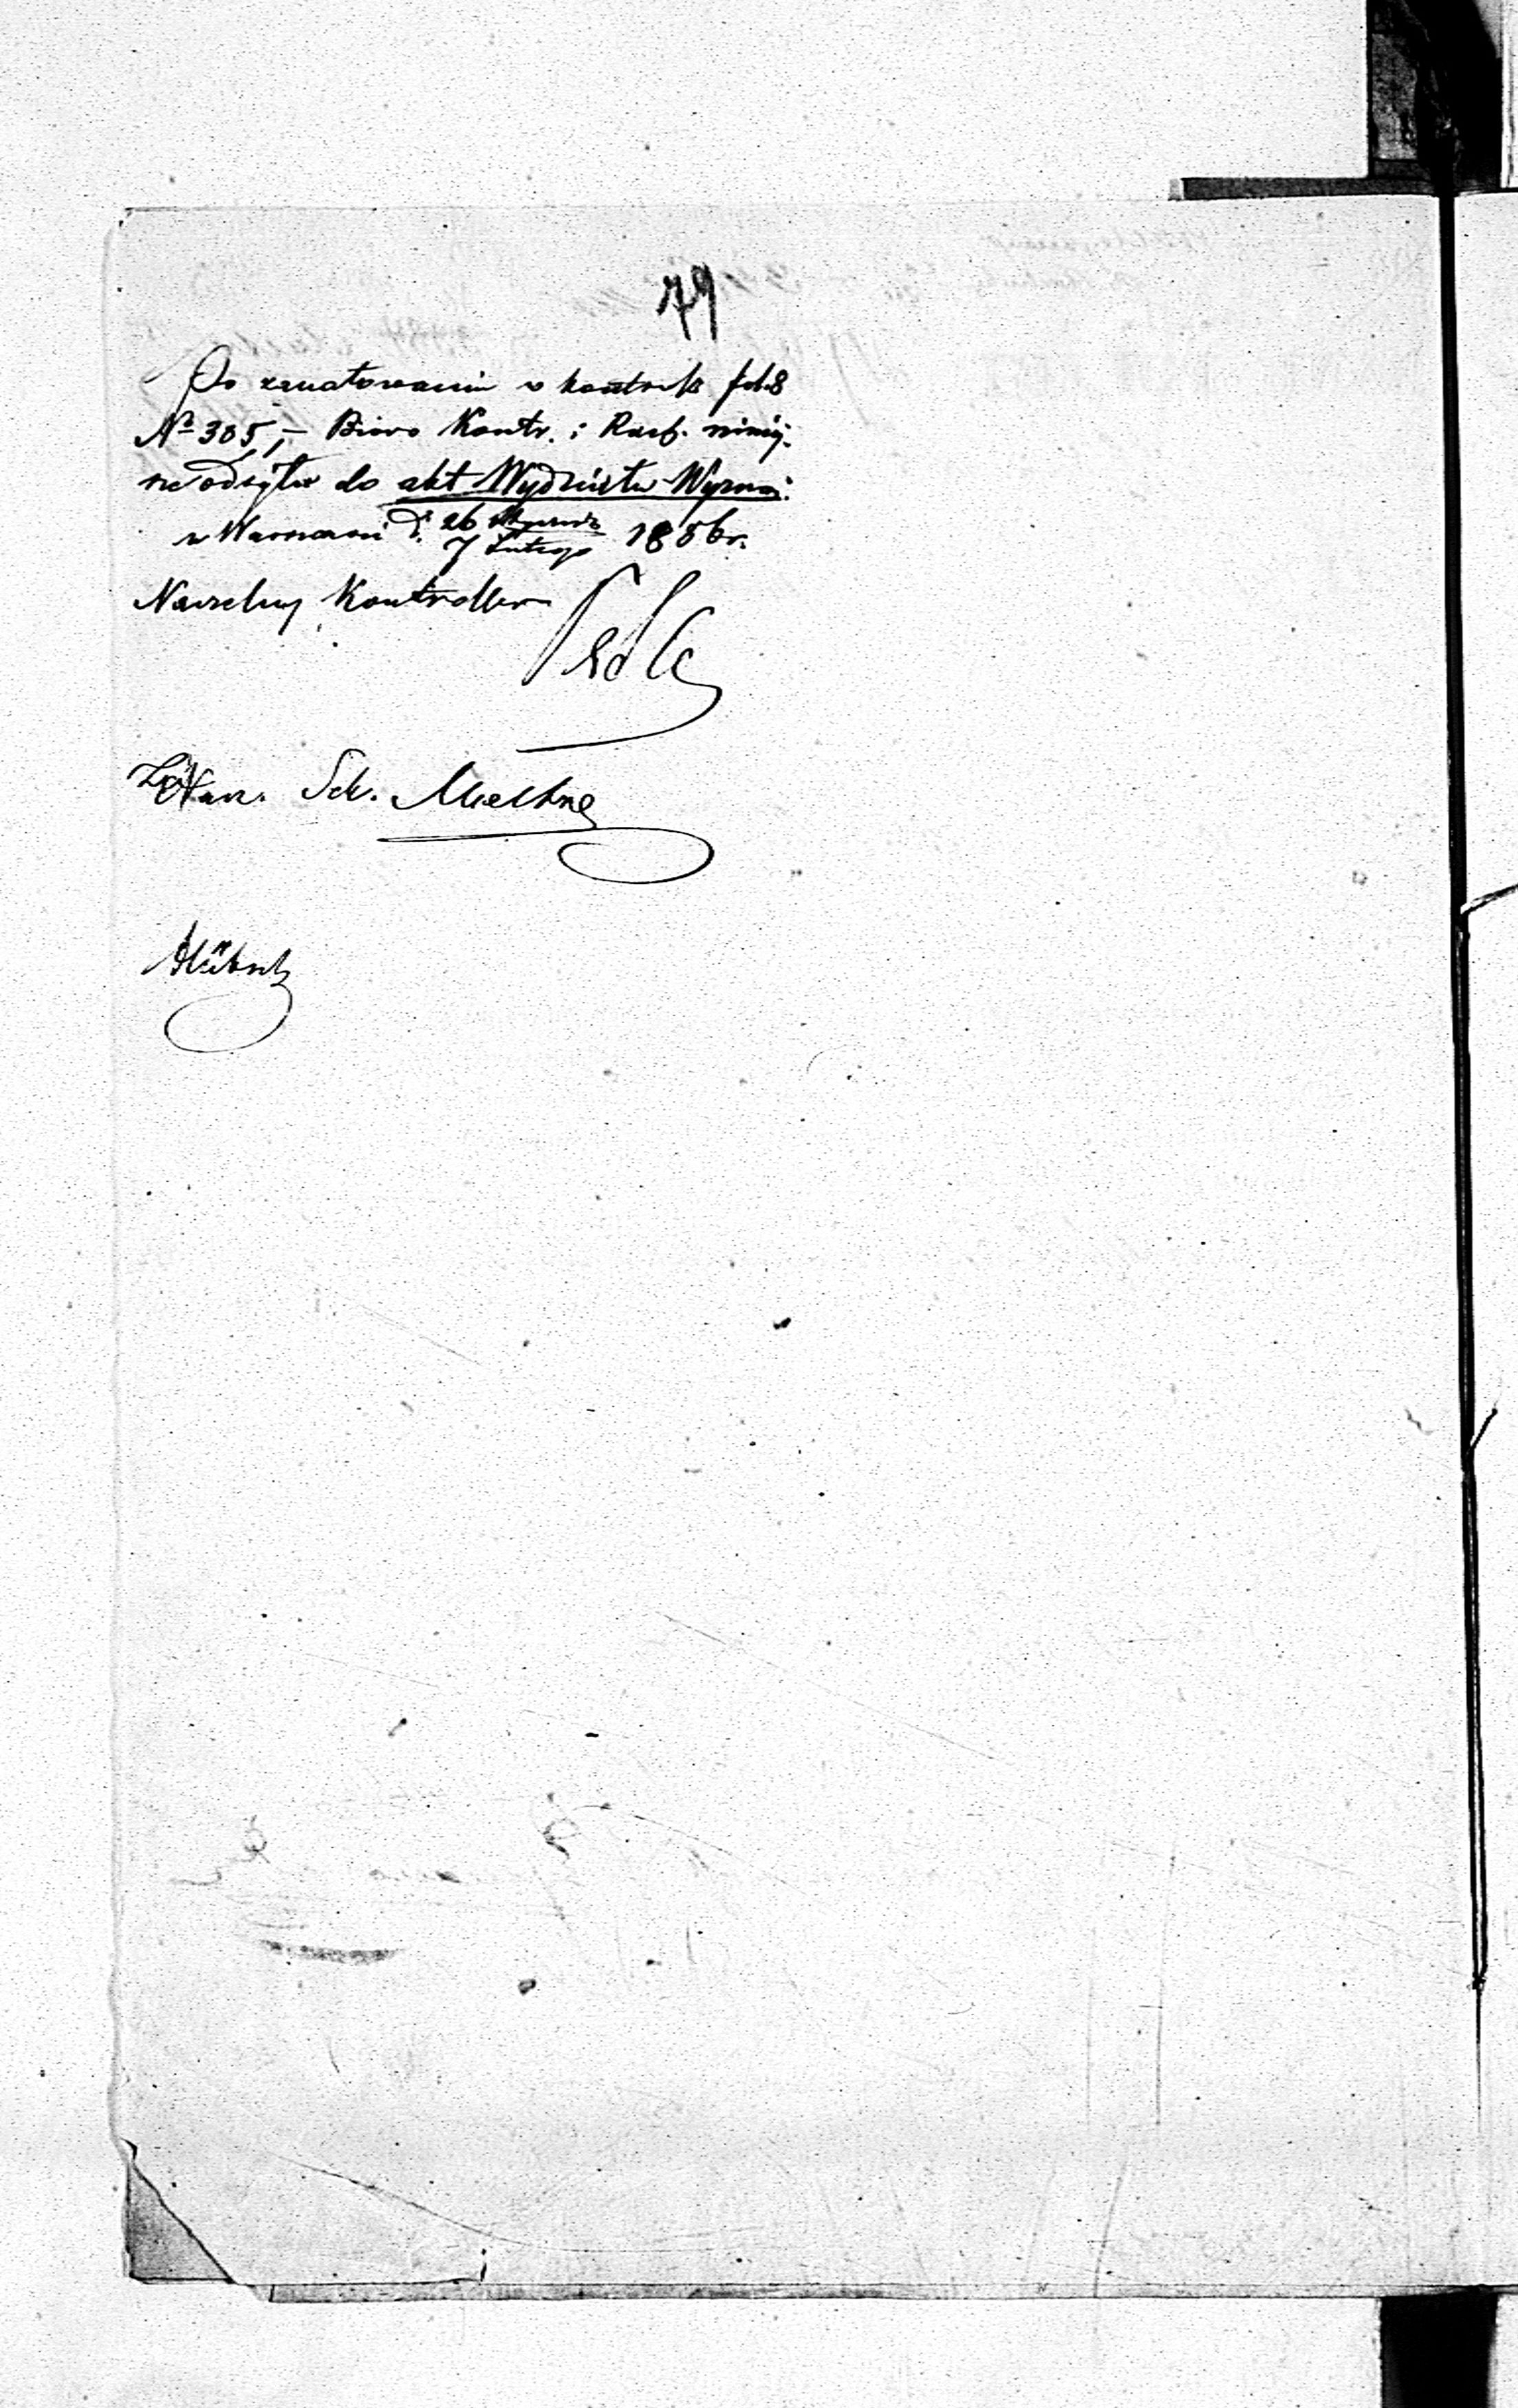 79
Po zanotowaniu w kontroli fol. 8
№ 305, – Biuro Kontr. i Rach. niniej-
sze odsyła do akt Wydziału Wyznań.
w Warszawie d. 26 Stycznia
7 Lutego 1856 r.
Naczelny Kontroller
Nacz. Sek.